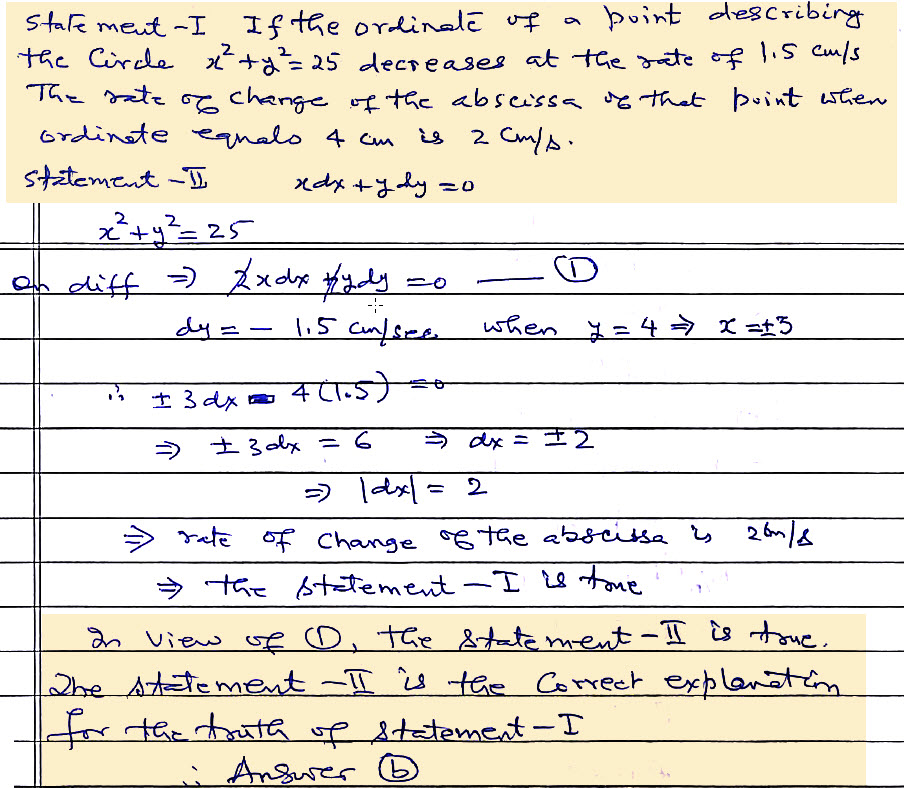 Statement-I If the ordinate of a point describing
the Circle x²+y²=25 decreases at the rate of 1.5 cm/s
The rate of change of the abscissa of that point when
ordinate equals 4 cm is 2 cm/s.
Statement-II xdx+ydy=0
x²+y²=25
On diff ⇒ 2xdx+2ydy=0 —— ①
dy = - 1.5 cm/sec when y=4 ⇒ x=±3
∴ ±3dx - 4(1.5) =0
⇒ ±3dx = 6 ⇒ dx = ±2
⇒ |dx| = 2
⇒ rate of change of the abscissa is 2cm/s
⇒ the statement-I is true
In view of ①, the statement-II is true.
The statement-II is the Correct explanation
for the truth of statement-I
∴ Answer ⓑ